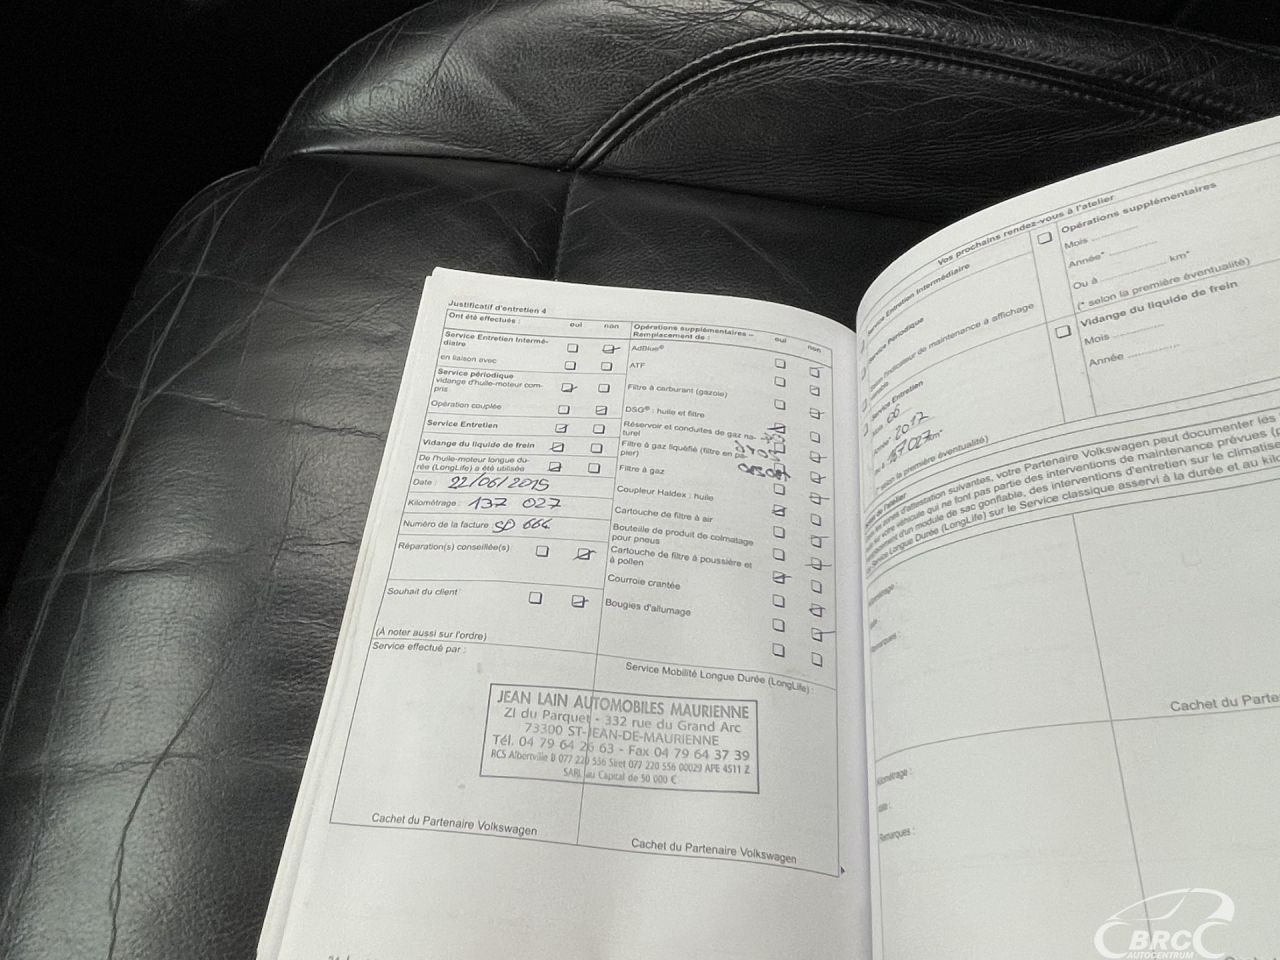 Justificatif d'entretien 4
Ont été effectués : oui non
Service Entretien Intermé-
diaire
en liaison avec
Service périodique
vidange d'huile-moteur com-
pris
Opération couplée
Service Entretien
Vidange du liquide de frein
De l'huile-moteur longue du-
rée (LongLife) a été utilisée
Date : 22/06/2015
Kilométrage : 137 027
Numéro de la facture : SD 664
Réparation(s) conseillée(s)
Souhait du client
(À noter aussi sur l'ordre)
Service effectué par :
Opérations supplémentaires –
Remplacement de : oui non
AdBlue®
ATF
Filtre à carburant (gazole)
DSG® : huile et filtre
Réservoir et conduites de gaz na-
turel
Filtre à gaz liquéfié (filtre en pa-
pier)
Filtre à gaz
Coupleur Haldex : huile
Cartouche de filtre à air
Bouteille de produit de colmatage
pour pneus
Cartouche de filtre à poussière et
à pollen
Courroie crantée
Bougies d'allumage
Service Mobilité Longue Durée (LongLife) :
JEAN LAIN AUTOMOBILES MAURIENNE
ZI du Parquet - 332 rue du Grand Arc
73300 ST-JEAN-DE-MAURIENNE
Tél. 04 79 64 26 63 - Fax 04 79 64 37 39
RCS Albertville B 077 220 556 Siret 077 220 556 00029 APE 4511 Z
SARL au Capital de 50 000 €
Cachet du Partenaire Volkswagen
Cachet du Partenaire Volkswagen
Vos prochains rendez-vous à l'atelier
Service Entretien Intermédiaire
Service Périodique
Selon l'indicateur de maintenance à affichage
Service Entretien
Mois 06
Année* 2017
167 027 km*
* selon la première éventualité)
Opérations supplémentaires
Mois
Année*
Ou à km*
(* selon la première éventualité)
Vidange du liquide de frein
Mois
Année
attestation suivantes, votre Partenaire Volkswagen peut documenter les
sur votre véhicule qui ne font pas partie des interventions de maintenance prévues (p.
module de sac gonflable, des interventions d'entretien sur le climatise
Service Longue Durée (LongLife) sur le Service classique asservi à la durée et au kilo
Kilométrage :
Remarques :
Cachet du Parten
Kilométrage :
Remarques :
BRC
AUTOCENTRUM